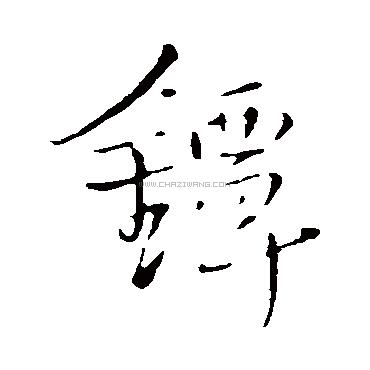 鐔
WWW.CHAZIWANG.COM